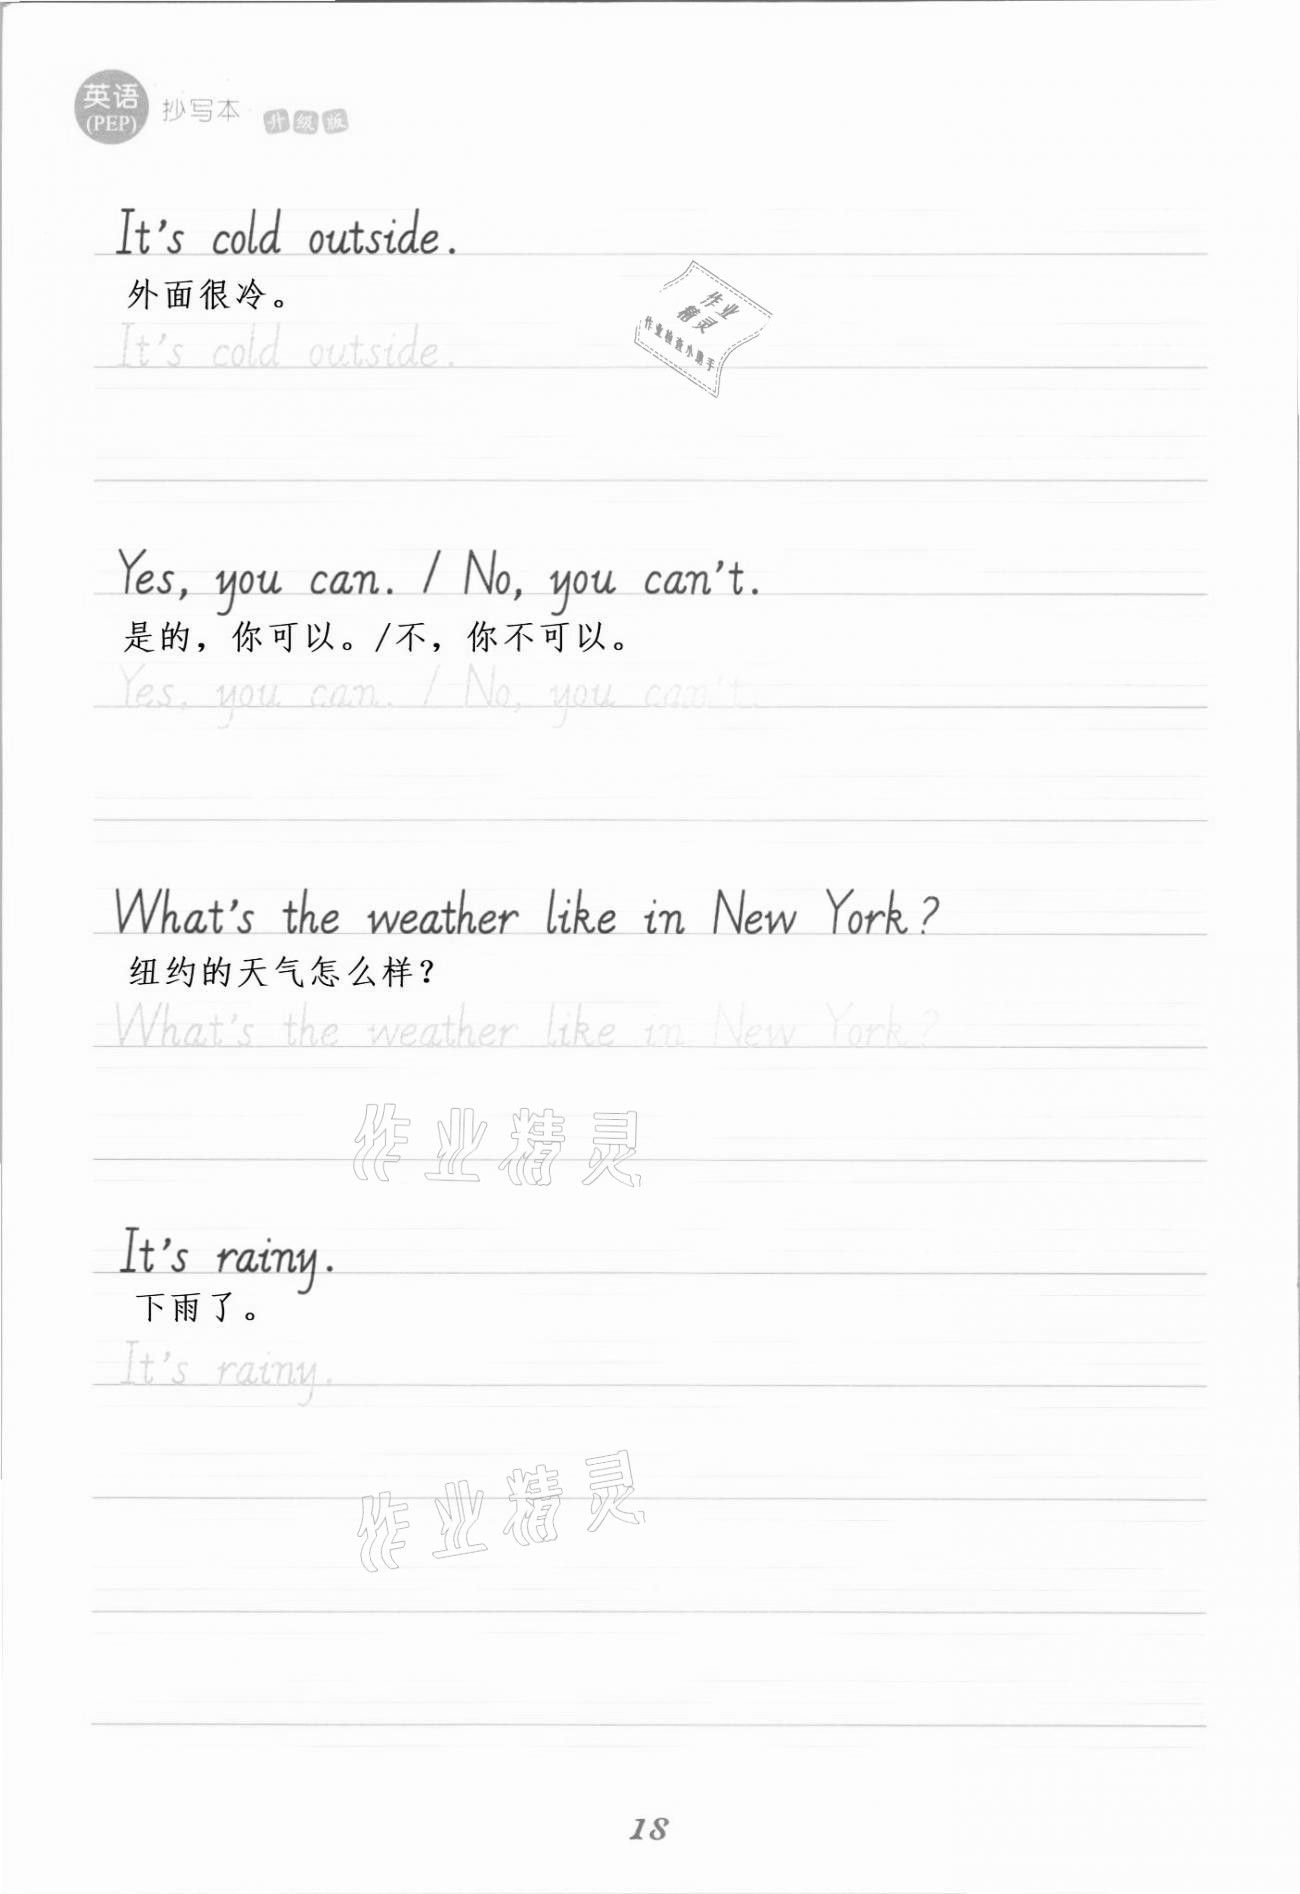 英语
(PEP)
抄写本 升级版
It's cold outside.
外面很冷。
It's cold outside.
作业
精灵
作业检查小助手
Yes, you can. / No, you can't.
是的，你可以。/不，你不可以。
Yes, you can. / No, you can't.
What's the weather like in New York?
纽约的天气怎么样？
What's the weather like in New York?
作业精灵
It's rainy.
下雨了。
It's rainy.
作业精灵
18